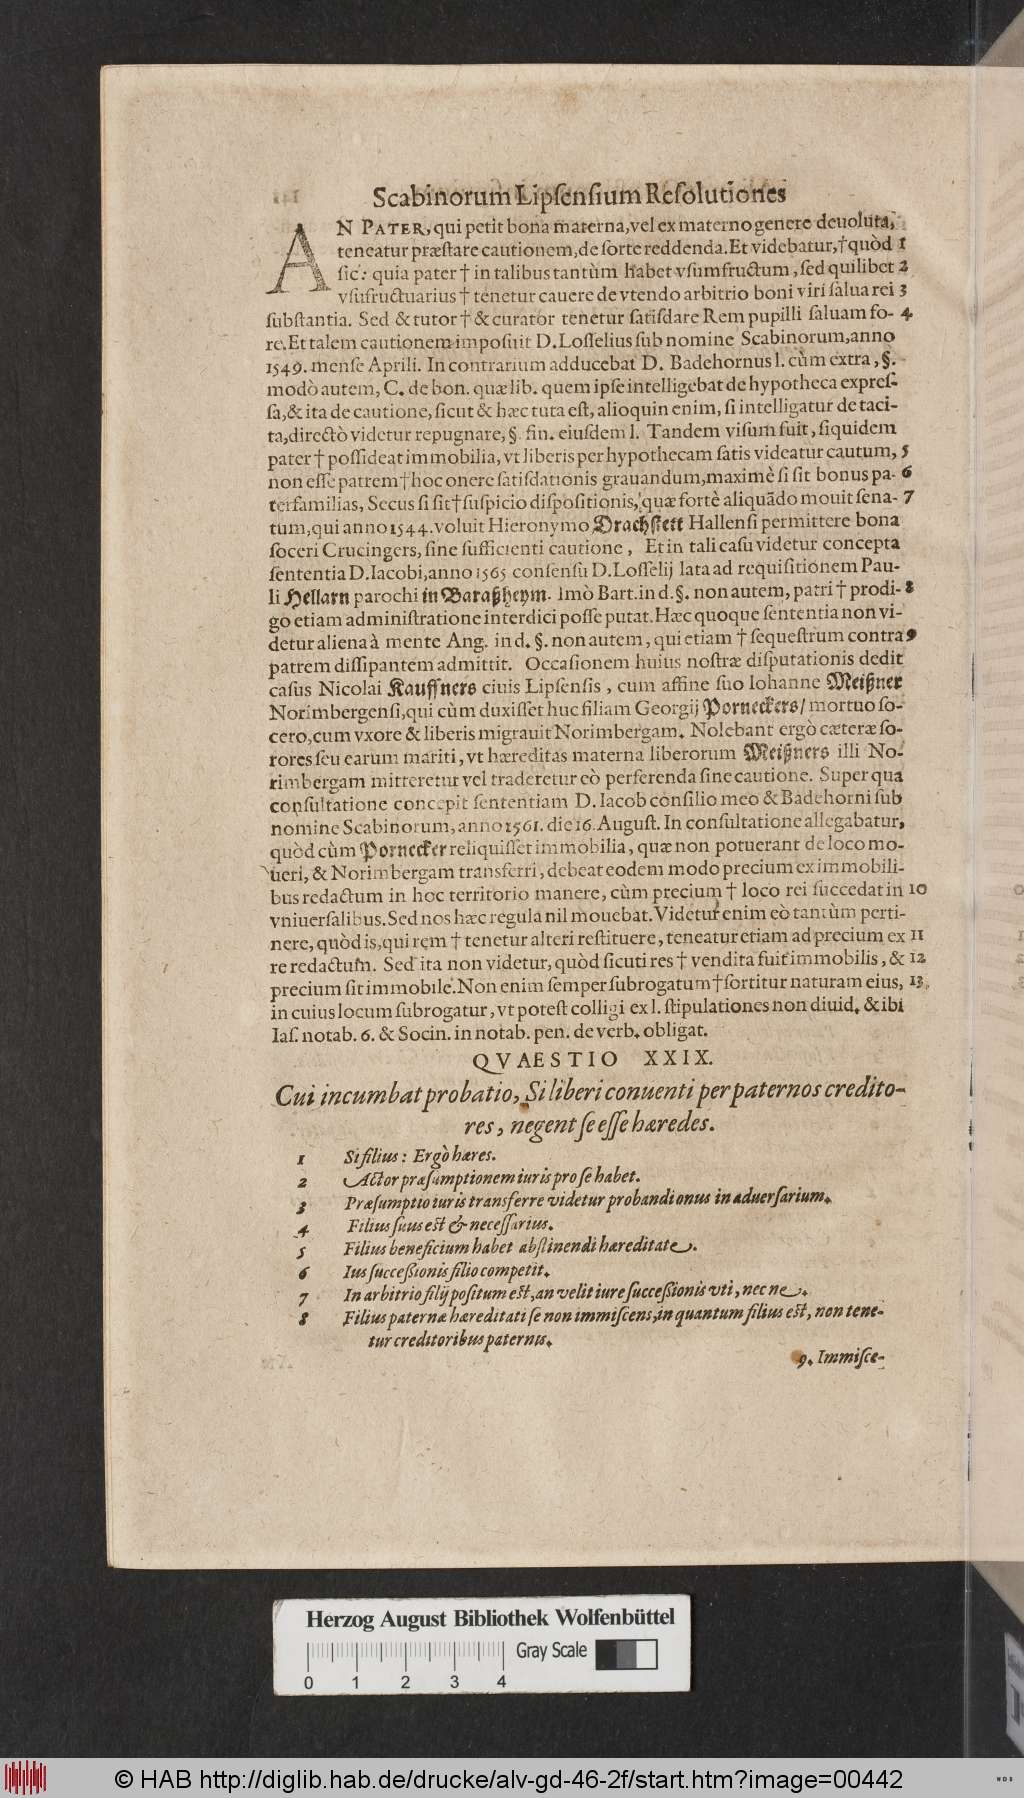 Scabinorum Lipsensium Resolutiones
AN PATER, qui petit bona materna, vel ex materno genere deuoluta,
teneatur præstare cautionem, de sorte reddenda. Et videbatur, † quòd 1
sic: quia pater † in talibus tantùm habet vsumfructum, sed quilibet 2
vsufructuarius † tenetur cauere de vtendo arbitrio boni viri salua rei 3
substantia. Sed & tutor † & curator tenetur satisdare Rem pupilli saluam fo- 4
re. Et talem cautionem imposuit D. Losselius sub nomine Scabinorum, anno
1549. mense Aprili. In contrarium adducebat D. Badehornus l. cùm extra, §.
modò autem, C. de bon. quæ lib. quem ipse intelligebat de hypotheca expres-
sa, & ita de cautione, sicut & hæc tuta est, alioquin enim, si intelligatur de taci-
ta, directò videtur repugnare, §. fin. eiusdem l. Tandem visum fuit, siquidem
pater † possideat immobilia, vt liberis per hypothecam satis videatur cautum, 5
non esse patrem † hoc onere satisdationis grauandum, maximè si sit bonus pa- 6
terfamilias, Secus si sit † suspicio dispositionis, quæ fortè aliquãdo mouit sena- 7
tum, qui anno 1544. voluit Hieronymo Drachstett Hallensi permittere bona
soceri Crucingers, sine sufficienti cautione, Et in tali casu videtur concepta
sententia D. Iacobi, anno 1565 consensu D. Losselij lata ad requisitionem Pau-
li Hellarn parochi in Baraßheym. Imò Bart. in d. §. non autem, patri † prodi- 8
go etiam administratione interdici posse putat. Hæc quoque sententia non vi-
detur aliena à mente Ang. in d. §. non autem, qui etiam † sequestrum contra 9
patrem dissipantem admittit. Occasionem huius nostræ disputationis dedit
casus Nicolai Kauffners ciuis Lipsensis, cum affine suo Iohanne Meißner
Norimbergensi, qui cùm duxisset huc filiam Georgij Porneckers/ mortuo so-
cero, cum vxore & liberis migrauit Norimbergam. Nolebant ergò cæteræ so-
rores seu earum mariti, vt hæreditas materna liberorum Meißners illi No-
rimbergam mitteretur vel traderetur eò perferenda sine cautione. Super qua
consultatione concepit sententiam D. Iacob consilio meo & Badehorni sub
nomine Scabinorum, anno 1561. die 16. August. In consultatione allegabatur,
quòd cùm Pornecker reliquisset immobilia, quæ non potuerant de loco mo-
ueri, & Norimbergam transferri, debeat eodem modo precium ex immobili-
bus redactum in hoc territorio manere, cùm precium † loco rei succedat in 10
vniuersalibus. Sed nos hæc regula nil mouebat. Videtur enim eò tantùm perti-
nere, quòd is, qui rem † tenetur alteri restituere, teneatur etiam ad precium ex 11
re redactum. Sed ita non videtur, quòd sicuti res † vendita fuit immobilis, & 12
precium sit immobile. Non enim semper subrogatum † sortitur naturam eius, 13
in cuius locum subrogatur, vt potest colligi ex l. stipulationes non diuid. & ibi
Ias. notab. 6. & Socin. in notab. pen. de verb. obligat.
QVAESTIO XXIX.
Cui incumbat probatio, Si liberi conuenti per paternos credito-
res, negent se esse hæredes.
1 Si filius: Ergò hæres.
2 Actor præsumptionem iuris pro se habet.
3 Præsumptio iuris transferre videtur probandi onus in aduersarium.
4 Filius suus est & necessarius.
5 Filius beneficium habet abstinendi hæreditate.
6 Ius successionis filio competit.
7 In arbitrio filij positum est, an velit iure successionis vti, nec ne.
8 Filius paternæ hæreditati se non immiscens, in quantum filius est, non tene-
tur creditoribus paternis.
9. Immisce-
Herzog August Bibliothek Wolfenbüttel
Gray Scale
0 1 2 3 4
© HAB http://diglib.hab.de/drucke/alv-gd-46-2f/start.htm?image=00442